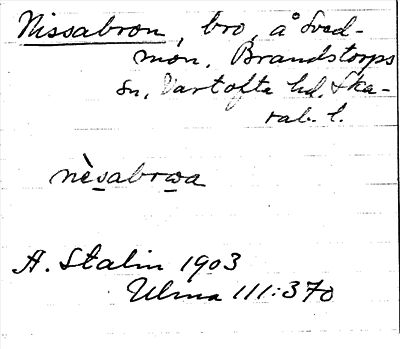 Nissabron, bro, å Sved-
mon, Brandstorps
sn, Vartofta hd. Ska-
rab. l.
nèsabrωa
A. Stalin 1903
Ulma 111:370